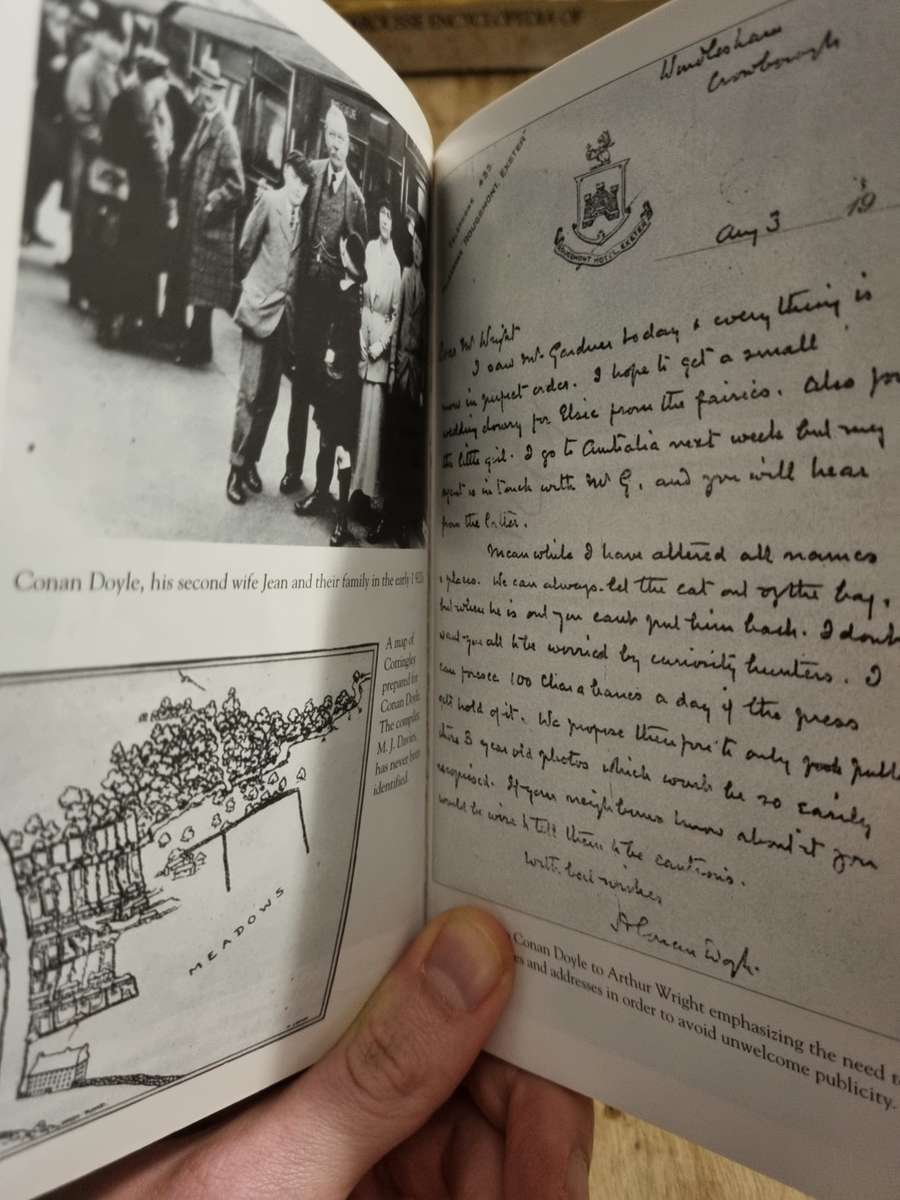 OUSSE ENCYCLOPEDIA OF
Conan Doyle, his second wife Jean and their family in the early
A map of
Cottingley
prepared for
Conan Doyle.
The compiler,
M. J. Davies,
has never been
identified.
MEADOWS
Windlesham
Crowborough
TELEPHONE 435
ROUGEMONT, EXETER
ROUGEMONT HOTEL EXETER
Aug 3 19
Dear Mr Wright
I saw Mr Gardner today & everything is
now in perfect order. I hope to get a small
wedding dowry for Elsie from the fairies. Also for
the little girl. I go to Australia next week but my
agent is in touch with Mr G, and you will hear
from the latter.
Meanwhile I have altered all names
& places. We can always let the cat out of the bag,
but when he is out you can't put him back. I don't
want you all to be worried by curiosity hunters. I
can foresee 100 Chara bancs a day if the press
gets hold of it. We propose therefore to only
3 year old photos which would be so easily
recognised. If your neighbours know about it you
would be wise to tell them to be cautious.
With best wishes
A Conan Doyle.
Conan Doyle to Arthur Wright emphasizing the need to
es and addresses in order to avoid unwelcome publicity.